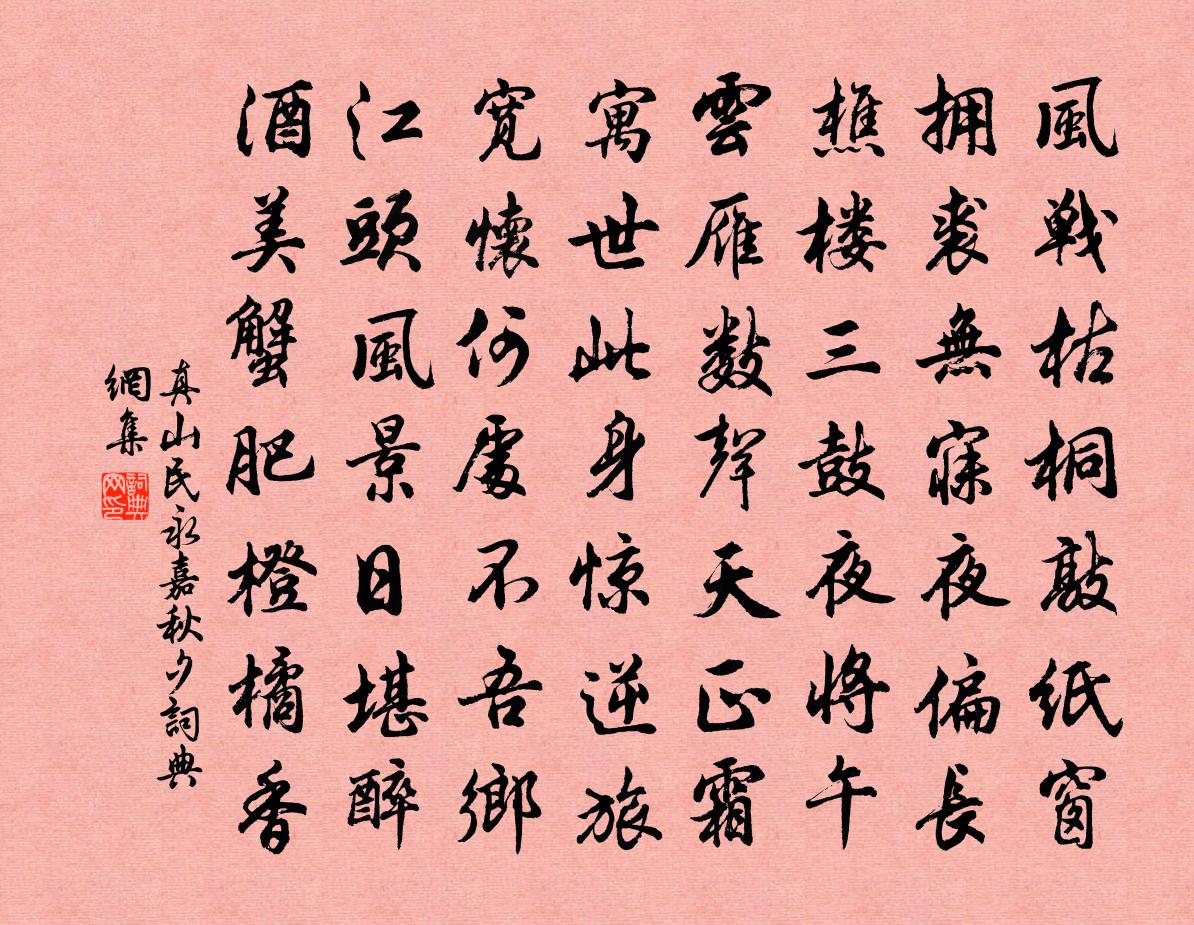 風戦枯桐敲紙窗
拥裘無寐夜偏長
樵楼三鼓夜将午
雲雁数聲天正霜
寓世此身惊逆旅
寛懷何處不吾鄉
江頭風景日堪醉
酒美蟹肥橙橘香
真山民永嘉秋夕詞典
網集
詞典
网印